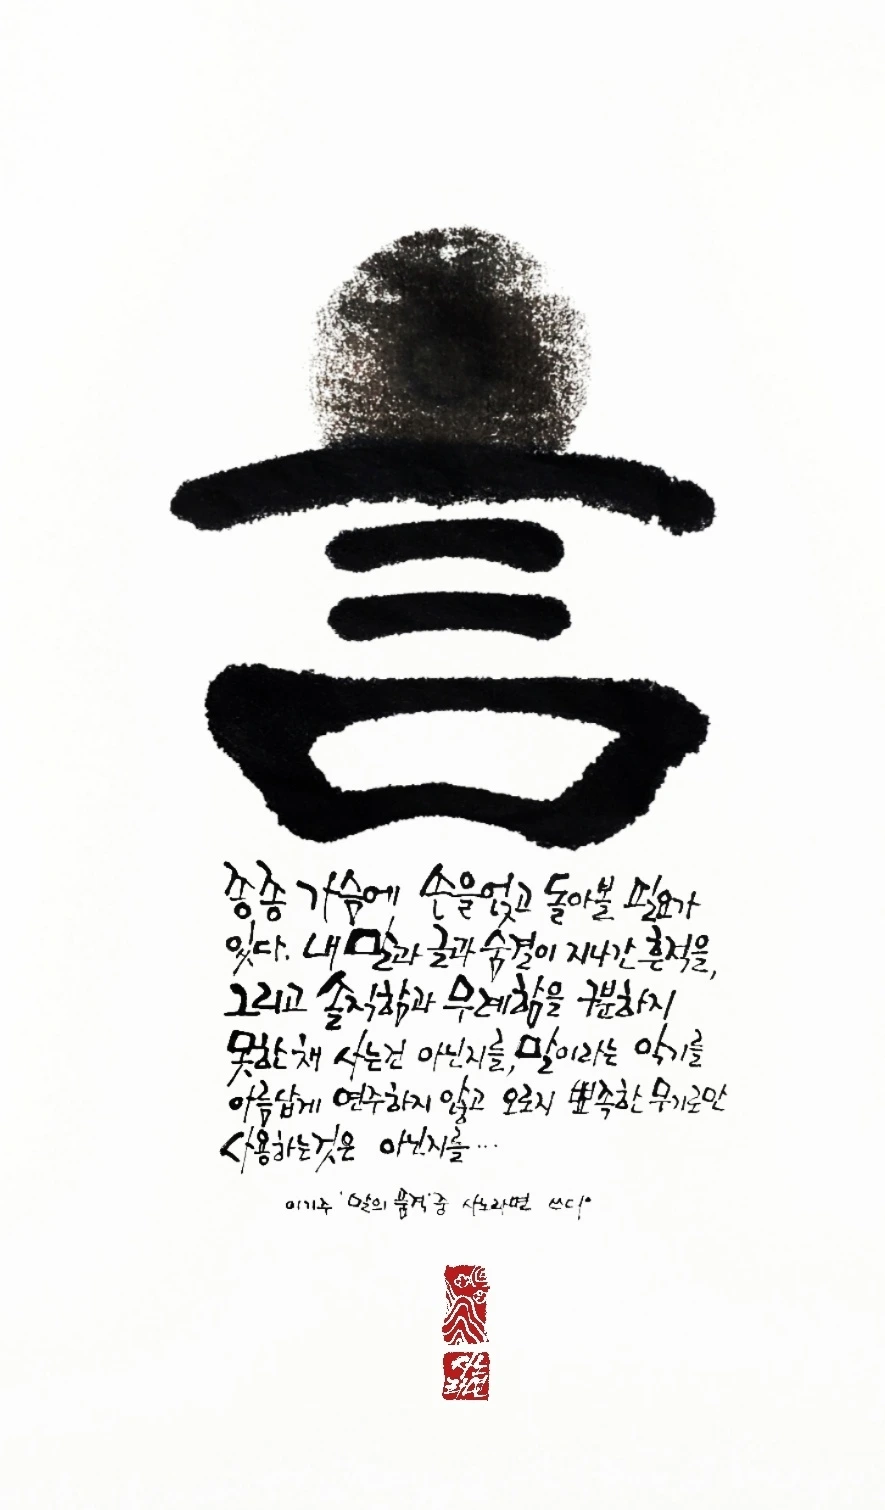 言
종종 가슴에 손을 얹고 돌아볼 필요가
있다. 내 말과 글과 숨결이 지나간 흔적을,
그리고 솔직함과 무례함을 구분하지
못한 채 사는건 아닌지를, 말이라는 악기를
아름답게 연주하지 않고 오로지 뾰족한 무기로만
사용하는것은 아닌지를...
이기주 '말의 품격' 중 시노라면 쓰다